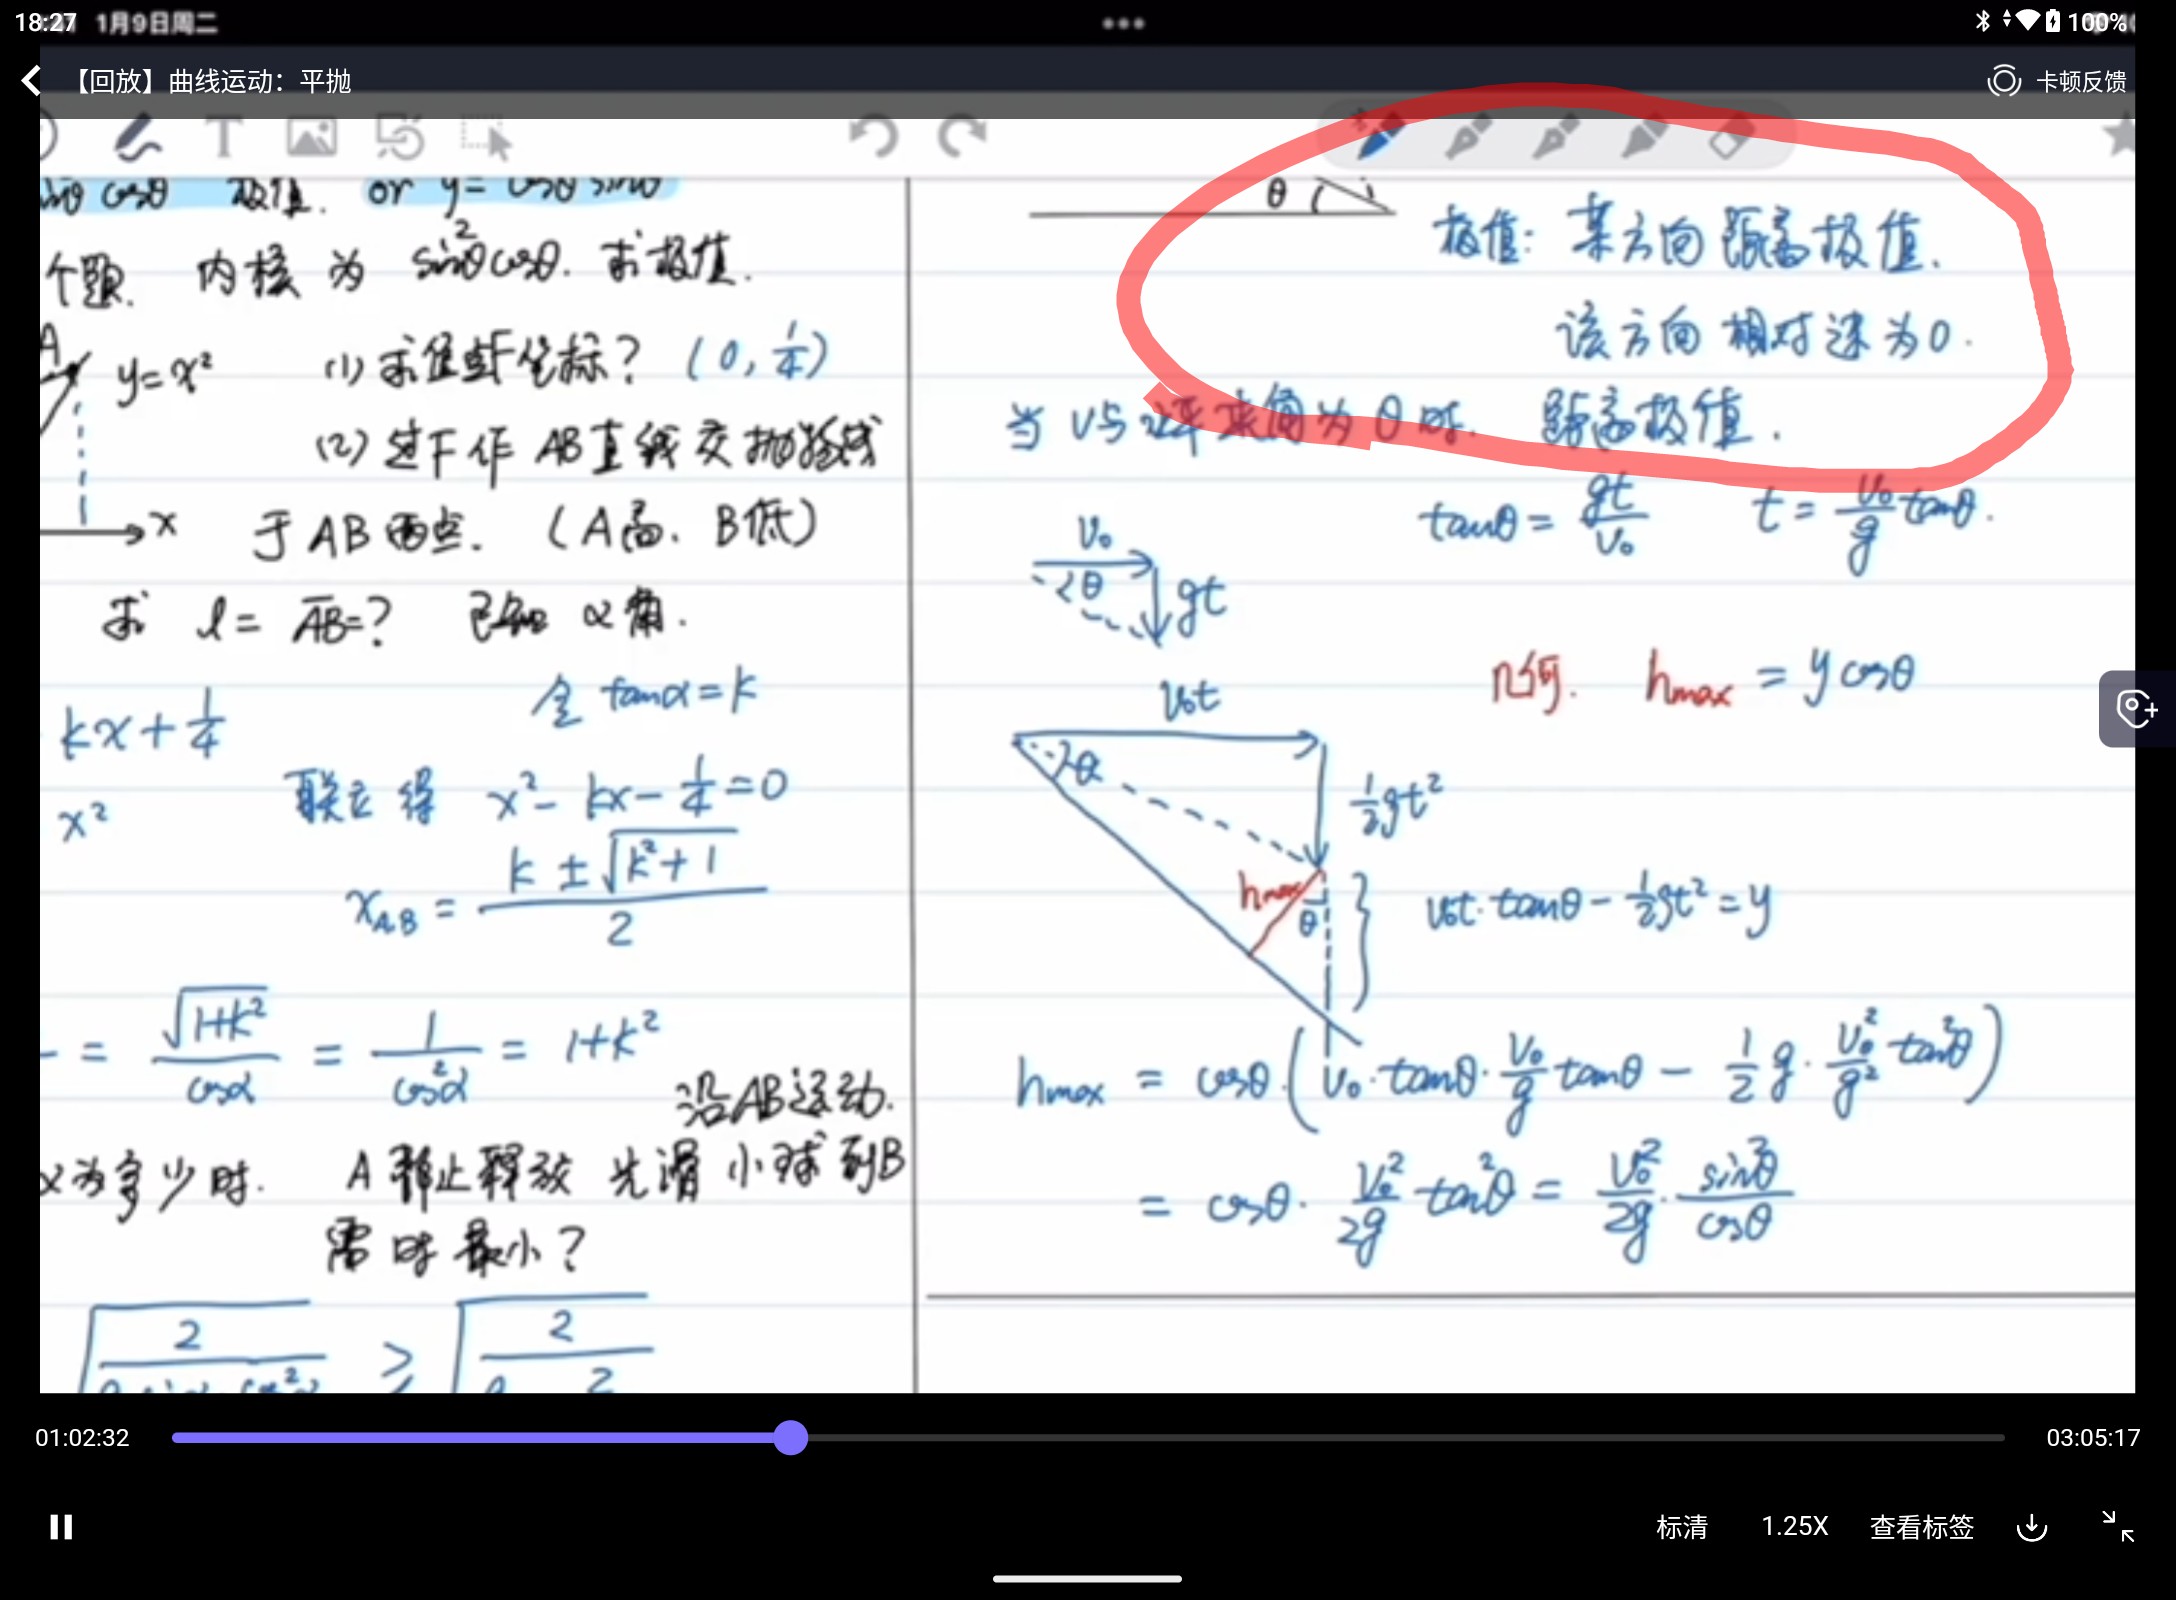 18:27 1月9日周二
100%
【回放】曲线运动：平抛
卡顿反馈
T
sinθ cosθ 极值. or y = cosθ sinθ
个题. 内核为 sin²θcosθ. 求极值.
A
y=x² (1) 求焦点F坐标? (0, 1/4)
(2) 过F作AB直线交抛物线
x 于AB两点. (A高、B低)
求 l = AB=? 已知 α角.
令 tanα = k
kx + 1/4
x² 联立得 x² - kx - 1/4 = 0
x_AB = (k ± √(k²+1))/2
= √(1+k²)/cosα = 1/cos²α = 1+k²
沿AB运动.
α为多少时. A静止释放 光滑小球到B
需时最小?
2 ≥ 2
θ
极值: 某方向距离极值.
该方向相对速为0.
当 v与斜面夹角为θ时. 距离极值.
tanθ = gt/v₀ t = v₀/g tanθ.
v₀
θ gt
几何. hmax = y cosθ
v₀t
θ
1/2 gt²
hmax
θ
v₀t·tanθ - 1/2 gt² = y
hmax = cosθ·(v₀·tanθ·v₀/g tanθ - 1/2 g·v₀²/g² tan²θ)
= cosθ·v₀²/2g tan²θ = v₀²/2g·sin²θ/cosθ
01:02:32
03:05:17
标清
1.25X
查看标签